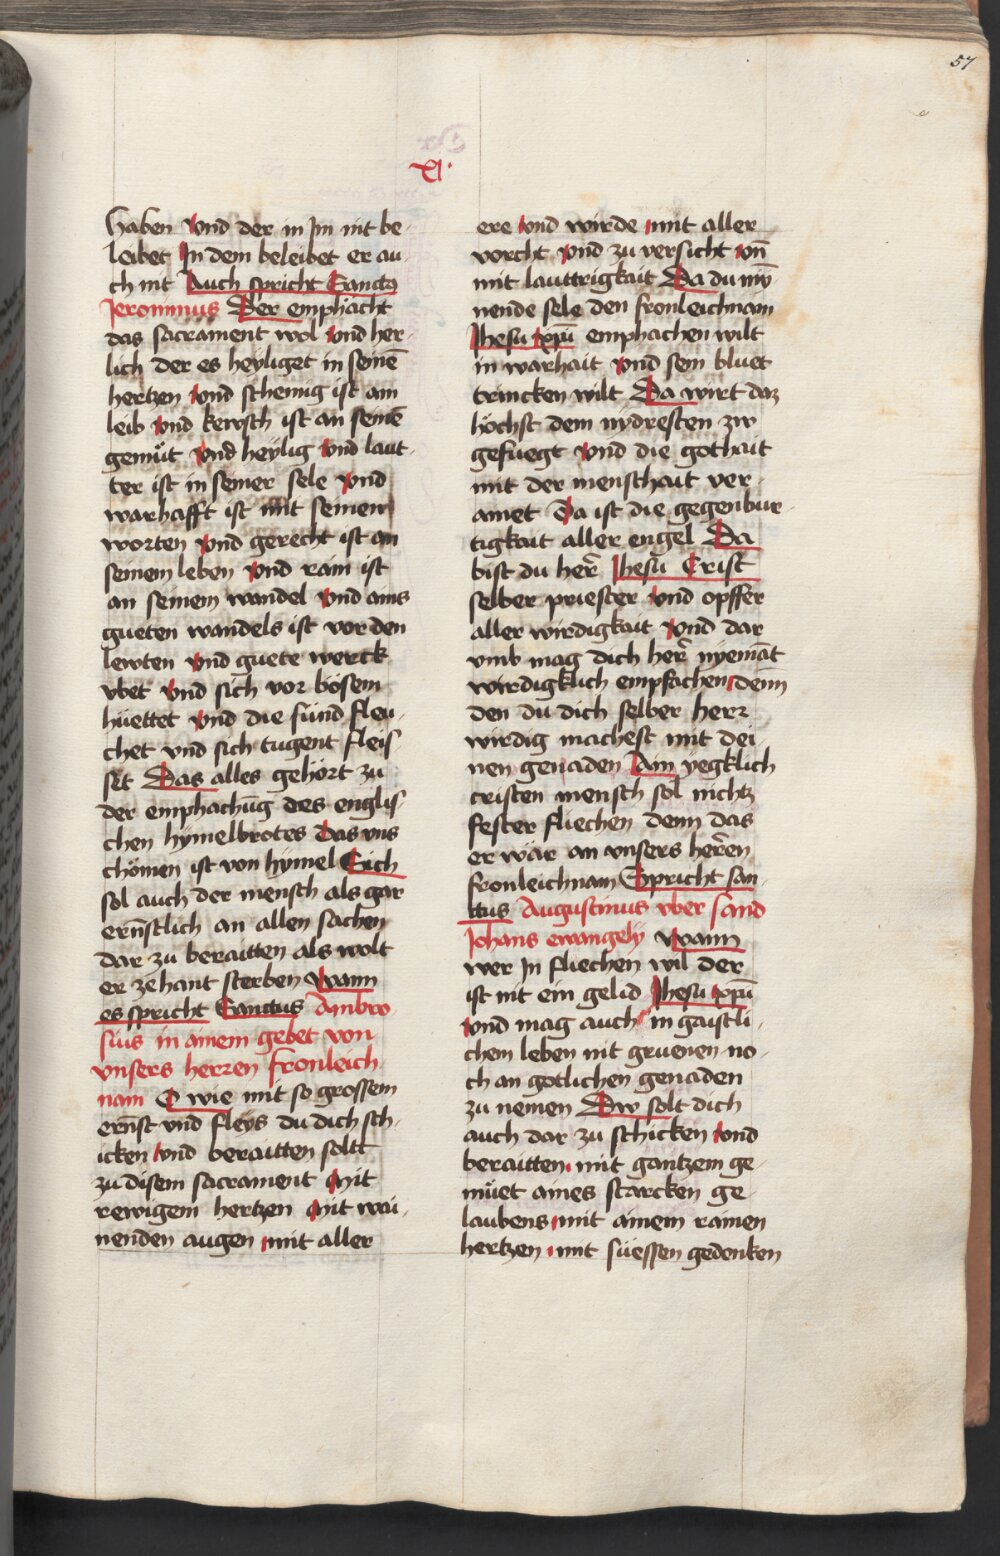 57
vi.
haben vnd der in Im nit be-
leibet In dem beleibet er au-
ch nit Auch spricht Sanctus
Jeronimus Der emphächt
das sacrament wol vnd her-
lich der es heyliget in seinē
hertzen vnd schemig ist am
leib vnd kewsch ist an seinē
gemüt vnd heylig vnd laut-
ter ist in seiner sele vnd
warhafft ist mit seinen
worten vnd gerecht ist an
seinem leben vnd rain ist
an seinem wandel vnd ains
gueten wandels ist vor den
lewten vnd guete werck
vbet vnd sich vor bösem
hüettet vnd die sünd fleu-
chet vnd sich tugent fleis-
set Das alles gehört zu
der emphachūg des englis-
chen hymelbrotes Das vns
chömen ist von hymel Sich
sol auch der mensch als gar
ernstlich an allen sachen
dar zu beraitten als wolt
er zehant sterben Wann
es spricht Sanctus Ambro-
sius in ainem gebet von
vnsers herren fronleich-
nam O wie mit so grossem
ernst vnd fleys du dich sch-
icken vnd beraitten soltt
zu disem sacrament Mit
rewigem hertzen Mit wai-
nenden augen mit aller
ere vnd wirde mit aller
vorcht vnd zu versicht vn̄
mit lauttrigkait Da du my-
nende sele den fronleichnam
Jhesu xpū emphachen wilt
in warhait vnd sein bluet
trincken wilt Da wirt daz
höchst dem nydresten zw
gefuegt vnd die gothait
mit der menschait ver-
ainet Da ist die gegenbur-
tigkait aller engel Da
bist du her̄ Jhesu Crist
selber priester vnd opffer
aller wirdigkait vnd dar
vmb mag dich her̄ nyemāt
wirdigklich empfachen denn
den du dich selber herr
wirdig machest mit dei-
nen genaden Ain yegklich
cristen mensch sol nichtz
fester fliechen denn das
er wär an vnsers heren
fronleichnam Spricht san-
ctus Augustinus vber sand
Johans ewangely Wann
wer In fliechen wil der
ist nit ein gelid Jhesu xpū
vnd mag auch in gaistli-
chem leben nit gruenen no-
ch an gotlichen genaden
zu nemen Dw solt dich
auch dar zu schicken vnd
beraitten mit gantzem ge-
müet aines starcken ge-
laubens mit ainem rainen
hertzen mit süessen gedenken